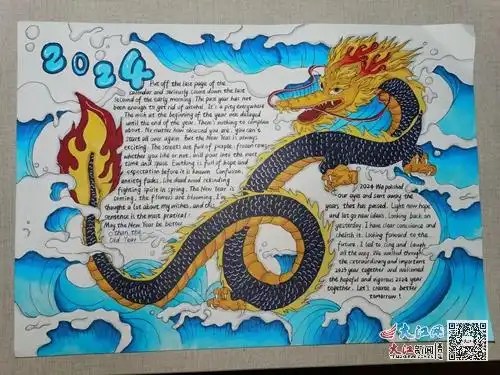 2024
Put off the last page of the
calendar and seriously count down the last
second of the early morning. The past year has not
been enough to get rid of alcohol. It's a pity everywhere
The mio at the beginning of the year was delayed
until the end of the year. Then nothing to complain
about. No matter how obsessed you are, you can't
start all over again. But the New Year is always
exciting. The streets are full of people, frozen roses
whether you like or not, will pour into the next
time and space. Earthing is full of hope and
expectation before it is known. Confusion,
anxiety fades, like dead wood rekindling
fighting spirit in spring. The New Year is
coming, the flowers are blooming. I've
thought a lot about my wishes, and the
sentence is the most practical:
May the New Year be better
than the
Old Year.
2024 We polished
our eyes and sent away the
years that has passed. Light new hope
and let go new ideas. Looking back on
yesterday, I have clear conscience and
cherish it. Looking forward to the
future, I led to sing and laugh
all the way. We walked through
the extraordinary and important
2023 year together and welcomed
the hopeful and vigorous 2024 year
together. Let's create a better
tomorrow!
大江网
大江新闻